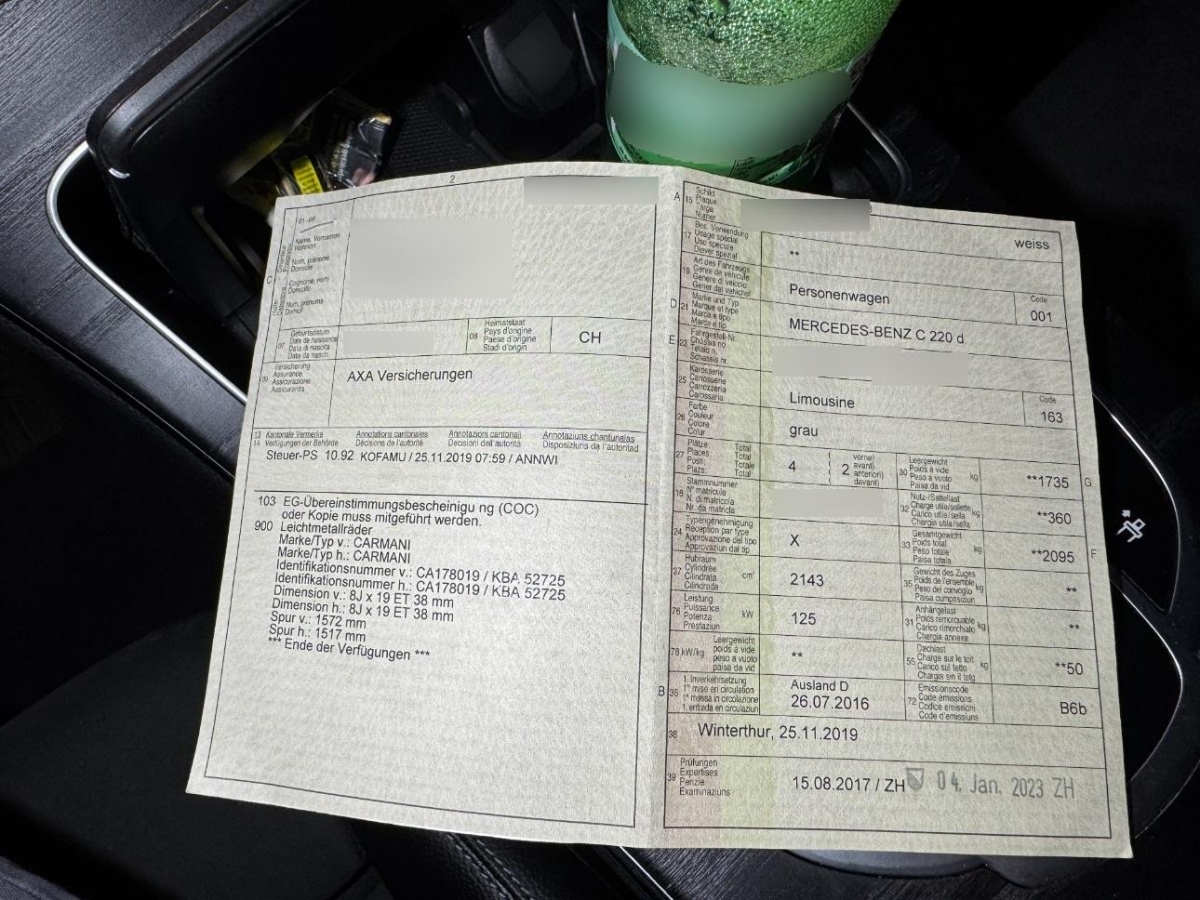 2
01-06
C
Name, Vornamen
Wohnort
Nom, prénoms
Domicile
Cognome, nomi
Domicilio
Num, prenums
Domicil
07
Geburtsdatum
Date de naissance
Data di nascita
Data da nasch.
08
Heimatstaat
Pays d'origine
Paese d'origine
Stadi d'origin
CH
09
Versicherung
Assurance
Assicurazione
Assicuranza
AXA Versicherungen
13
14
Kantonale Vermerke
Verfügungen der Behörde
Annotations cantonales
Décisions de l'autorité
Annotazioni cantonali
Decisioni dell'autorità
Annotaziuns chantunalas
Disposiziuns da l'autoritad
Steuer-PS 10.92 KOFAMU / 25.11.2019 07:59 / ANNWI
103 EG-Übereinstimmungsbescheinigu ng (COC)
oder Kopie muss mitgeführt werden.
900 Leichtmetallräder
Marke/Typ v.: CARMANI
Marke/Typ h.: CARMANI
Identifikationsnummer v.: CA178019 / KBA 52725
Identifikationsnummer h.: CA178019 / KBA 52725
Dimension v.: 8J x 19 ET 38 mm
Dimension h.: 8J x 19 ET 38 mm
Spur v.: 1572 mm
Spur h.: 1517 mm
*** Ende der Verfügungen ***
A
15
Schild
Plaque
Targa
Numer
weiss
17
Bes. Verwendung
Usage spécial
Uso speciale
Diever spezial
**
19
Art des Fahrzeugs
Genre de véhicule
Genere di veicolo
Gener dal vehichel
Personenwagen
Code
001
D
21
Marke und Typ
Marque et type
Marca e tipo
Marca e tip
MERCEDES-BENZ C 220 d
E
23
Fahrgestell-Nr.
Châssis no
Telaio n.
Schassis nr.
25
Karosserie
Carrosserie
Carrozzeria
Carossaria
Limousine
Code
163
26
Farbe
Couleur
Colore
Colur
grau
27
Plätze Total
Places: Total
Posti: Totale
Plazs: Total
4
2
vorne)
avant)
anteriori)
davant)
30
Leergewicht
Poids à vide
Peso a vuoto
Paisa da vid
kg
**1735
G
18
Stammnummer
N° matricule
N. di matricola
Nr. da matricla
32
Nutz-/Sattellast
Charge utile/sellette
Carico utile/sella
Chargia utila/sella
kg
**360
24
Typengenehmigung
Réception par type
Approvazione del tipo
Approvaziun dal tip
X
33
Gesamtgewicht
Poids total
Peso totale
Paisa totala
kg
**2095
F
37
Hubraum
Cylindrée
Cilindrata
Cilindrada
cm³
2143
35
Gewicht des Zuges
Poids de l'ensemble
Peso del convoglio
Paisa cumposiziun
kg
**
76
Leistung
Puissance
Potenza
Prestaziun
kW
125
31
Anhängelast
Poids remorquable
Carico rimorchiato
Chargia annexa
kg
**
78 kW/kg
Leergewicht
poids à vide
peso a vuoto
paisa da vid
**
55
Dachlast
Charge sur le toit
Carico sul tetto
Chargia sin il tetg
kg
**50
B
36
1. Inverkehrsetzung
1re mise en circulation
1a messa in circolazione
1. entrada en circulaziun
Ausland D
26.07.2016
72
Emissionscode
Code émissions
Codice emissioni
Code d'emissiuns
B6b
38
Winterthur, 25.11.2019
39
Prüfungen
Expertises
Perizie
Examinaziuns
15.08.2017 / ZH
04. Jan. 2023 ZH